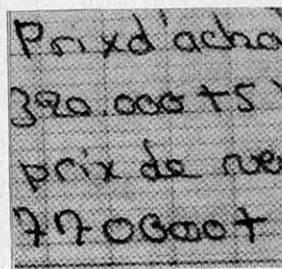 Prix d'acha
390.000 + 5
prix de ve
7700000 +